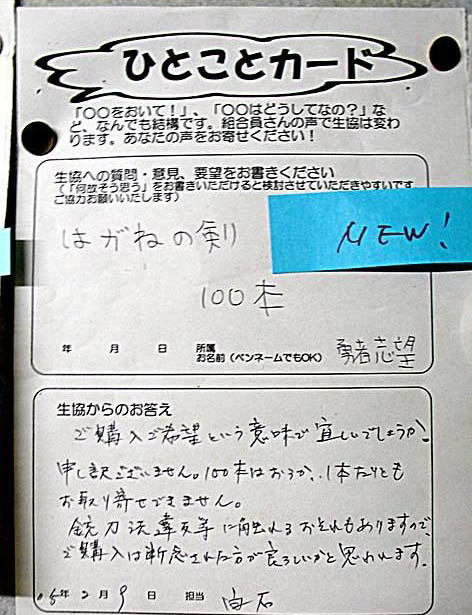 ひとことカード
「○○をおいて！」、「○○はどうしてなの？」な
ど、なんでも結構です。組合員さんの声で生協は変わ
ります。あなたの声をお寄せください！
生協への質問・意見、要望をお書きください
（「何故そう思う」をお書きいただけると検討させていただきやすいです
ご協力お願いいたします）
はがねの剣
NEW!
100本
年 月 日 所属
お名前（ペンネームでもOK） 勇者志望
生協からのお答え
ご購入ご希望という意味で宜しいでしょうか。
申し訳ございません。100本はおろか、1本たりとも
お取り寄せできません。
銃刀法違反等に触れるおそれもありますので、
ご購入は断念された方が良ろしいかと思われます。
05年 2月 9日 担当 白石